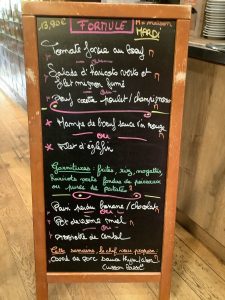 13,90€ FORMULE Fait maison
MARDI
Tomate farcie au boeuf
ou
Salade d'haricots verts et
filet mignon fumé
ou
Oeuf cocotte poulet/champignons
Hampe de boeuf sauce vin rouge
ou
Filet d'églefin
Garnitures : frites, riz, nuggets,
haricots verts, fondue de poireaux
ou purée de patate
Pain perdu banane/chocolat
ou
Pot de crème miel
ou
Cantal
Cette semaine, le chef vous propose :
de porc sauce thym/citron
Cuisson